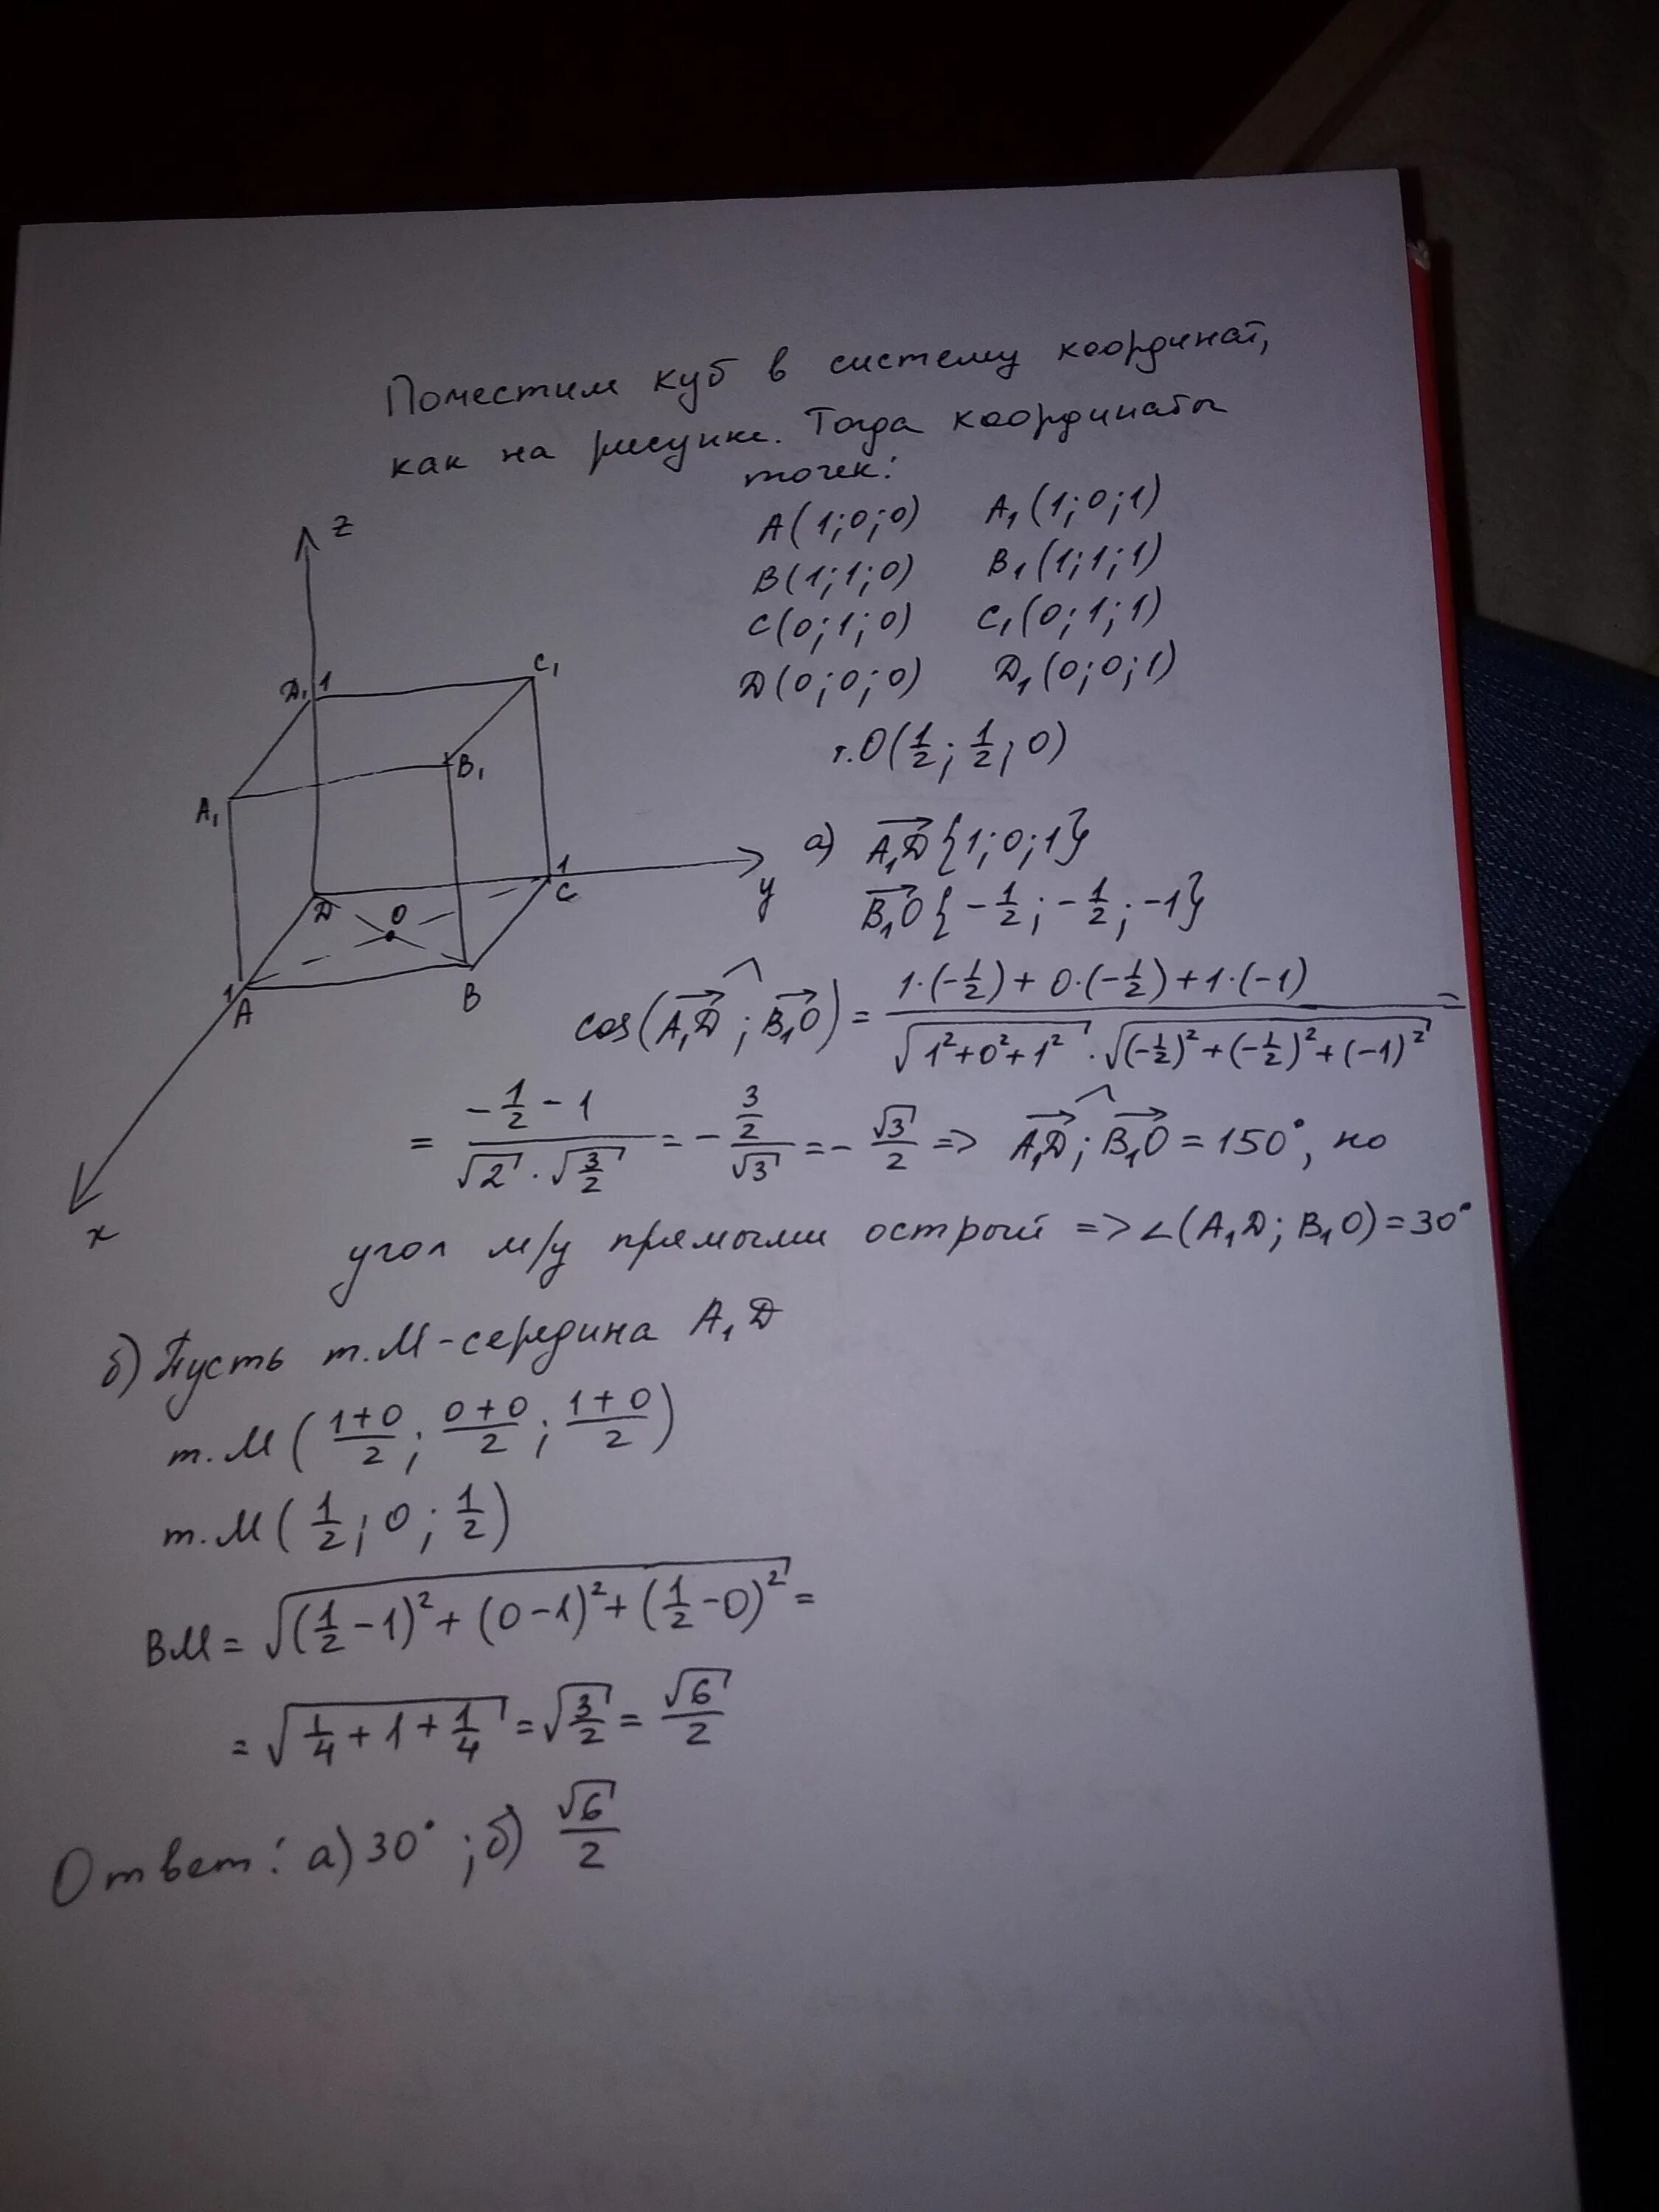 Поместим куб в систему координат,
как на рисунке. Тогда координаты
точек:
A(1;0;0) A₁(1;0;1)
B(1;1;0) B₁(1;1;1)
C(0;1;0) C₁(0;1;1)
D(0;0;0) D₁(0;0;1)
т.O(1/2; 1/2; 0)
z
D₁ 1
C₁
B₁
A₁
1
C
y
D
O
1
A
B
x
а) A₁D{1;0;1}
B₁O{-1/2; -1/2; -1}
cos(A₁D; B₁O) = (1·(-1/2) + 0·(-1/2) + 1·(-1)) / (√(1²+0²+1²) · √((-1/2)²+(-1/2)²+(-1)²)) =
= (-1/2 - 1) / (√2 · √(3/2)) = - (3/2)/√3 = - √3/2 => A₁D; B₁O = 150°, но
угол м/у прямыми острый => ∠(A₁D; B₁O) = 30°
б) Пусть т.М-середина A₁D
т.М((1+0)/2; (0+0)/2; (1+0)/2)
т.М(1/2; 0; 1/2)
BM = √((1/2-1)² + (0-1)² + (1/2-0)²) =
= √(1/4 + 1 + 1/4) = √(3/2) = √6/2
Ответ: а) 30°; б) √6/2